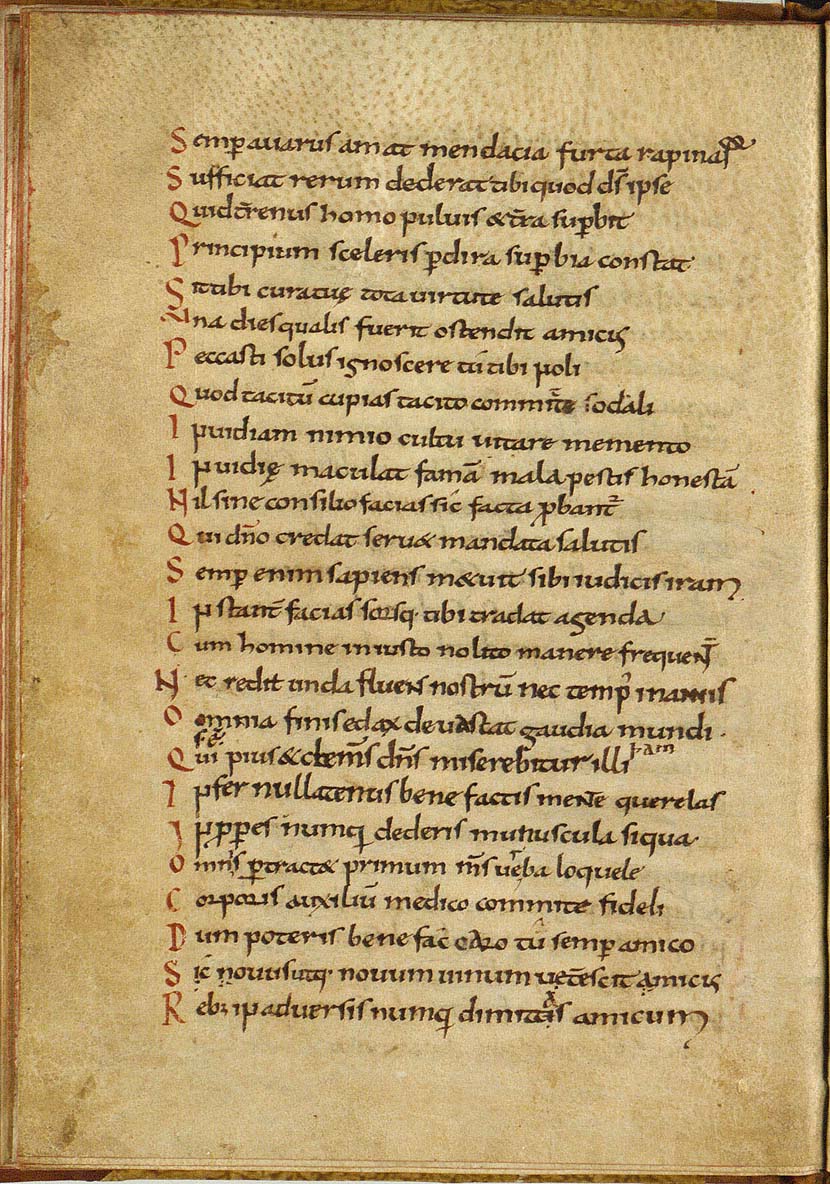 Semp̄ auarus amat mendacia furta rapinasq;
Sufficiat rerum dederat tibi quod ds̄ ipse
Quid t̄renus homo puluis & t̄ra sup̄bit
Principium sceleris p̄dira sup̄bia constat
Sit tibi cura tuę tota uirtute salutis
Una dies qualis fuerit ostendit amicis
Peccasti solus ignoscere tū tibi noli
Quod tacitū cupias tacito committe sodali
Inuidiam nimio cultu uitare memento
Inuidię maculat famā mala pestis honestā
Nil sine consilio facias sic facta p̄bant̄
Qui dn̄o credat seru& mandata salutis
Semp̄ enim sapiens m&uit sibi iudicis iram
Instant̄ facias sorsq· tibi tradat agenda
Cum homine iniusto nolito manere frequent̄
Nec redit unda fluens nostrū nec temp' inannis
Omnia finis edax deuastat gaudia mundi·
Qui pius & clem̄s dn̄s miserebitur illi
Infer nullatenus bene factis ment̄e querelas
Inp̄p̄es numq dederis munuscula siqua·
Omnis p̄tract& primum m̄s uerba loquele
Corporis auxiliū medico committe fideli
Dum poteris bene fac caro tū semp̄ amico
Sic nouus utq· nouum uinum uet̄escit amicis
Reb; in aduersis numq dimittas amicum